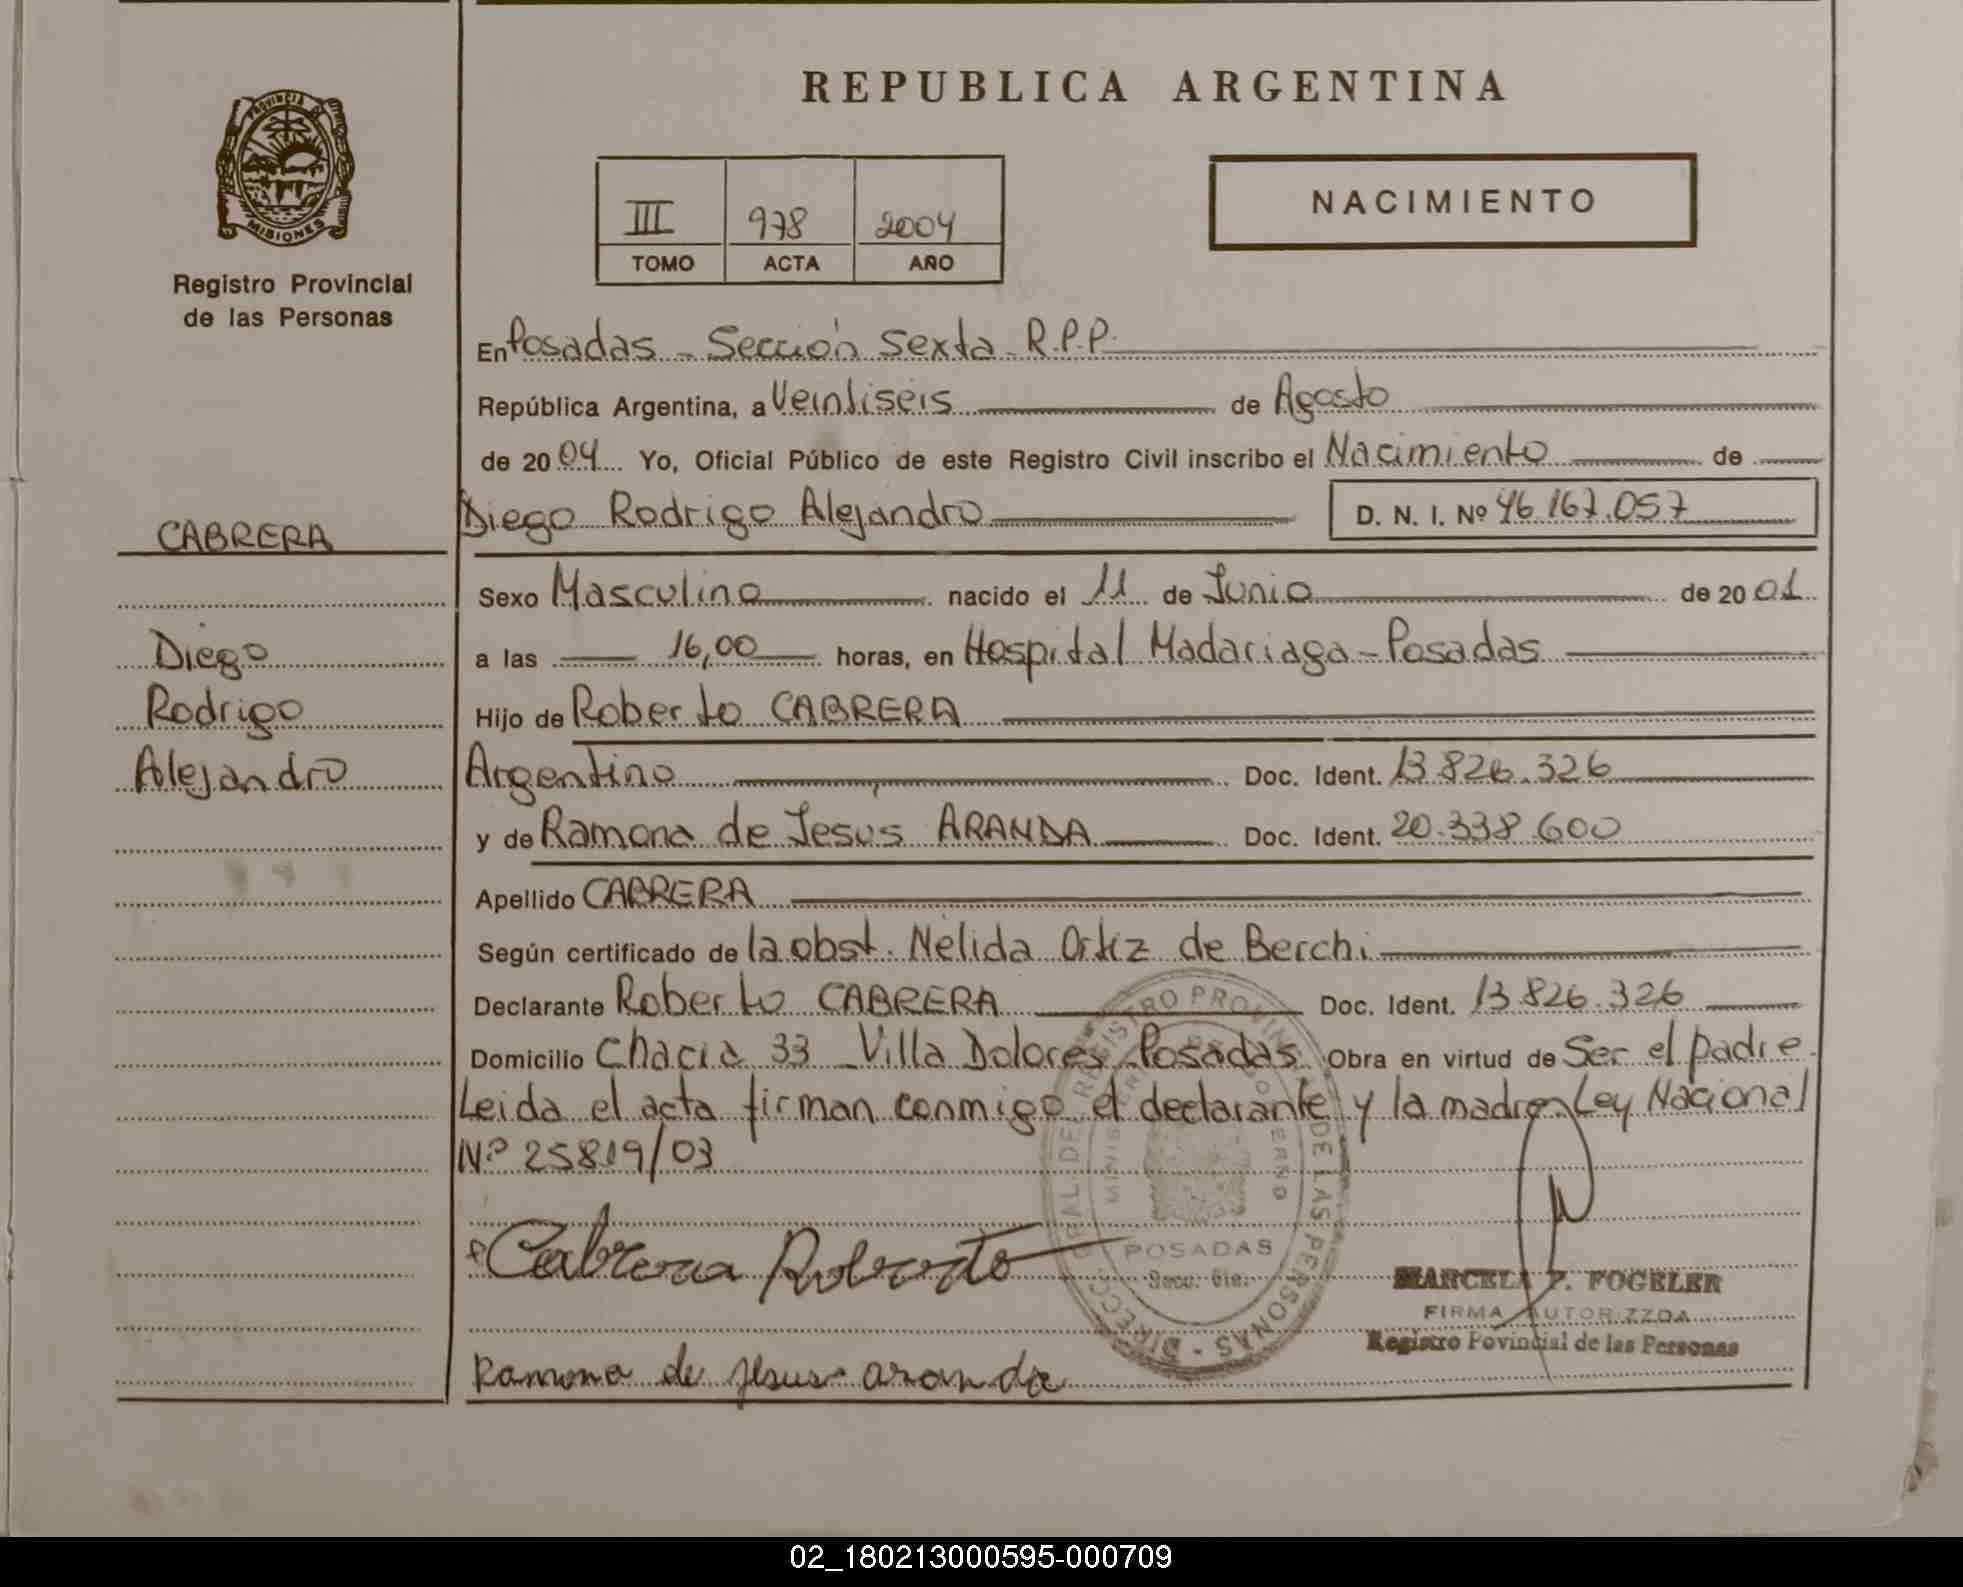 REPUBLICA ARGENTINA
PROVINCIA DE
MISIONES
Registro Provincial
de las Personas
III 978 2004
TOMO ACTA AÑO
NACIMIENTO
En Posadas - Sección Sexta - R.P.P.
República Argentina, a Veintiseis de Agosto
de 2004 Yo, Oficial Público de este Registro Civil inscribo el Nacimiento de
Diego Rodrigo Alejandro D. N. I. Nº 46.167.057
CABRERA
Sexo Masculino nacido el 11 de Junio de 2001
Diego
a las 16,00 horas, en Hospital Madariaga - Posadas
Rodrigo
Hijo de Roberto CABRERA
Alejandro
Argentino Doc. Ident. 13.826.326
y de Ramona de Jesus ARANDA Doc. Ident. 20.338.600
Apellido CABRERA
Según certificado de la obst. Nelida Ortiz de Berchi
Declarante Roberto CABRERA Doc. Ident. 13.826.326
Domicilio Chacra 33 - Villa Dolores - Posadas Obra en virtud de Ser el padre.
Leida el acta firman conmigo el declarante y la madre. Ley Nacional
Nº 25819/03
Cabrera Roberto
Ramona de Jesus aranda
DIRECC. GRAL. DE REGISTRO PROVINCIAL DE LAS PERSONAS
POSADAS
Secc. 6ta.
MARCELA FOGELER
FIRMA AUTORIZZDA
Registro Povincial de las Personas
02_180213000595-000709